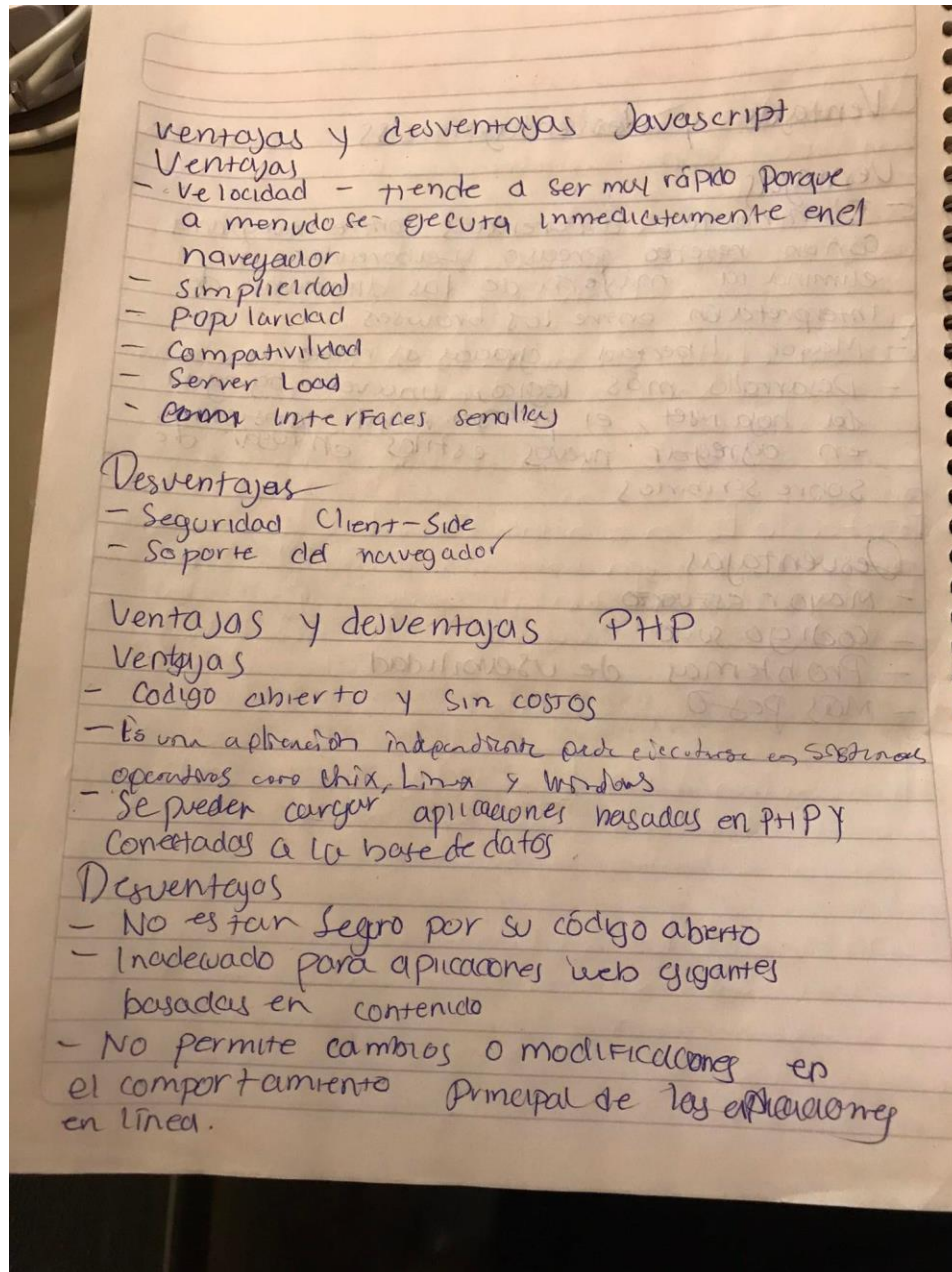 ventajas y desventajas Javascript
Ventajas
- Velocidad - tiende a ser muy rápido porque
a menudo se ejecuta inmediatamente en el
navegador
- Simplicidad
- Popularidad
- Compativilidad
- Server Load
- Interfaces
Desventajas
- Seguridad Client-Side
- Soporte del navegador
Ventajas y desventajas PHP
Ventajas
- Codigo abierto y sin costos
- Es una aplicación independiente pede ejecutarse en sistemas
operativos como Unix, Linux y Windows
- Se pueden cargar aplicaciones basadas en PHP Y
Conectadas a la base de datos.
Desventajas
- No es tan segro por su código aberto
- Inadecuado para aplicaciones web gigantes
basadas en contenido
- No permite cambios o modificaciones en
el comportamiento principal de las aplicaciones
en línea.